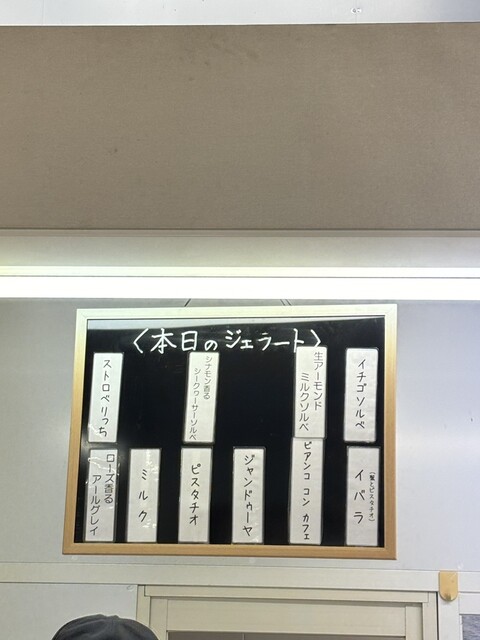 〈本日のジェラート〉
イチゴソルベ
生アーモンド
ミルクソルベ
シナモン香る
シークヮーサーソルベ
ストロベリっち
イバラ
ビアンコ コン カフェ
ジャンドゥーヤ
ピスタチオ
ミルク
ローズ香る
アールグレイ